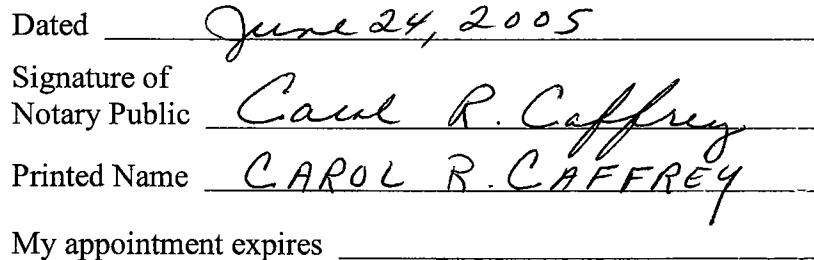 Dated June 24, 2005
Signature of
Notary Public Carol R. Caffrey
Printed Name CAROL R. CAFFREY
My appointment expires